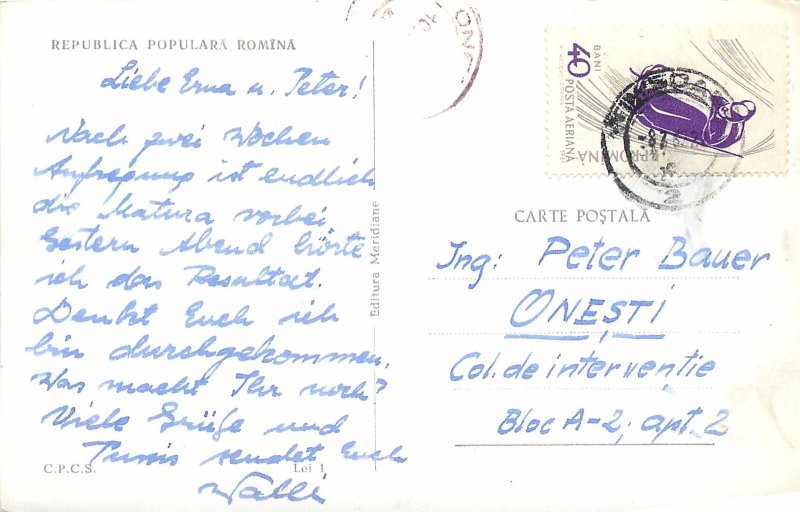 REPUBLICA POPULARĂ ROMÎNĂ
Liebe Erna u. Peter!
Nach zwei Wochen
Aufregung ist endlich
die Matura vorbei
Gestern Abend hörte
ich das Resultat.
Denkt Euch ich
bin durchgekommen.
Was macht Ihr noch?
Viele Grüße und
sendet Euch
Walli
C.P.C.S.
Lei 1
Editura Meridiane
40 BANI
POSTA AERIANA
R.P.ROMINA
CARTE POȘTALĂ
Ing: Peter Bauer
ONEȘTI
Col. de intervenție
Bloc A-2; apt. 2